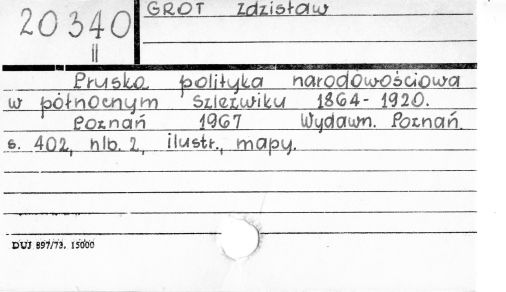 20340
II
GROT Zdzisław
Pruska polityka narodowościowa
w północnym Szlezwiku 1864-1920.
Poznań 1967 Wydawn. Poznań.
s. 402, nlb. 2, ilustr., mapy.
DUJ 897/73. 15000